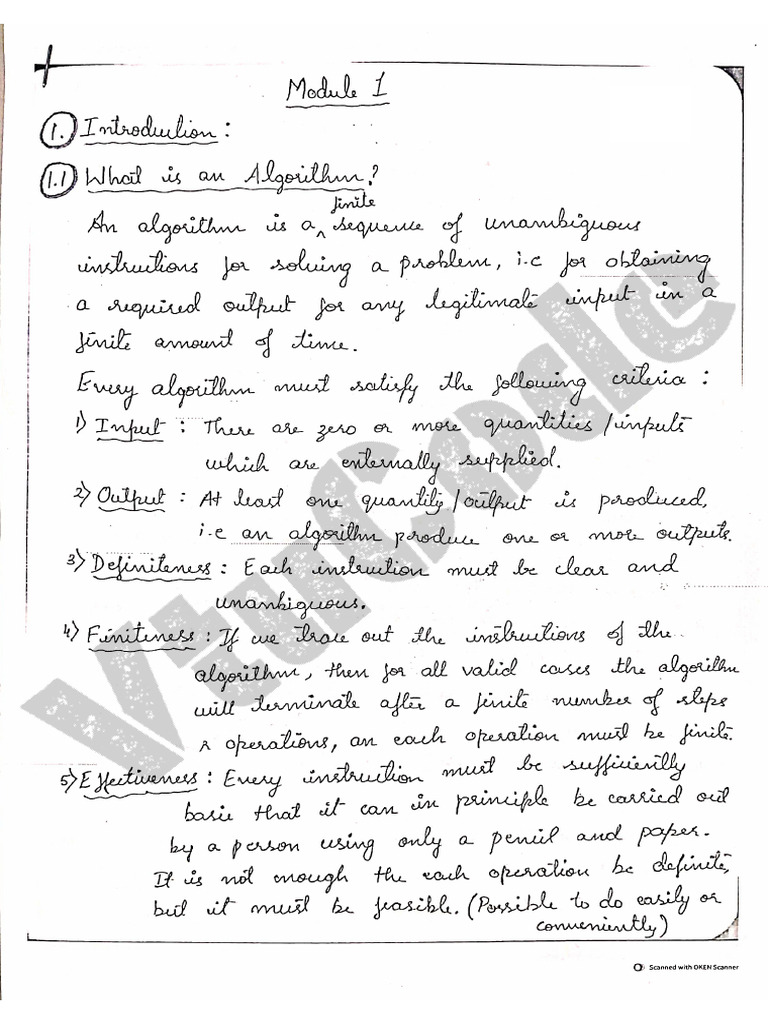 Module 1
1. Introduction:
1.1 What is an Algorithm?
An algorithm is a finite sequence of unambiguous
instructions for solving a problem, i.e for obtaining
a required output for any legitimate input in a
finite amount of time.
Every algorithm must satisfy the following criteria:
1) Input : There are zero or more quantities/inputs
which are externally supplied.
2) Output : At least one quantity/output is produced,
i.e an algorithm produce one or more outputs.
3) Definiteness : Each instruction must be clear and
unambiguous.
4) Finiteness : If we trace out the instructions of the
algorithm, then for all valid cases the algorithm
will terminate after a finite number of steps
& operations, an each operation must be finite.
5) Effectiveness : Every instruction must be sufficiently
basic that it can in principle be carried out
by a person using only a pencil and paper.
It is not enough the each operation be definite,
but it must be feasible. (Possible to do easily or
conveniently)
VtuCode
Scanned with OKEN Scanner